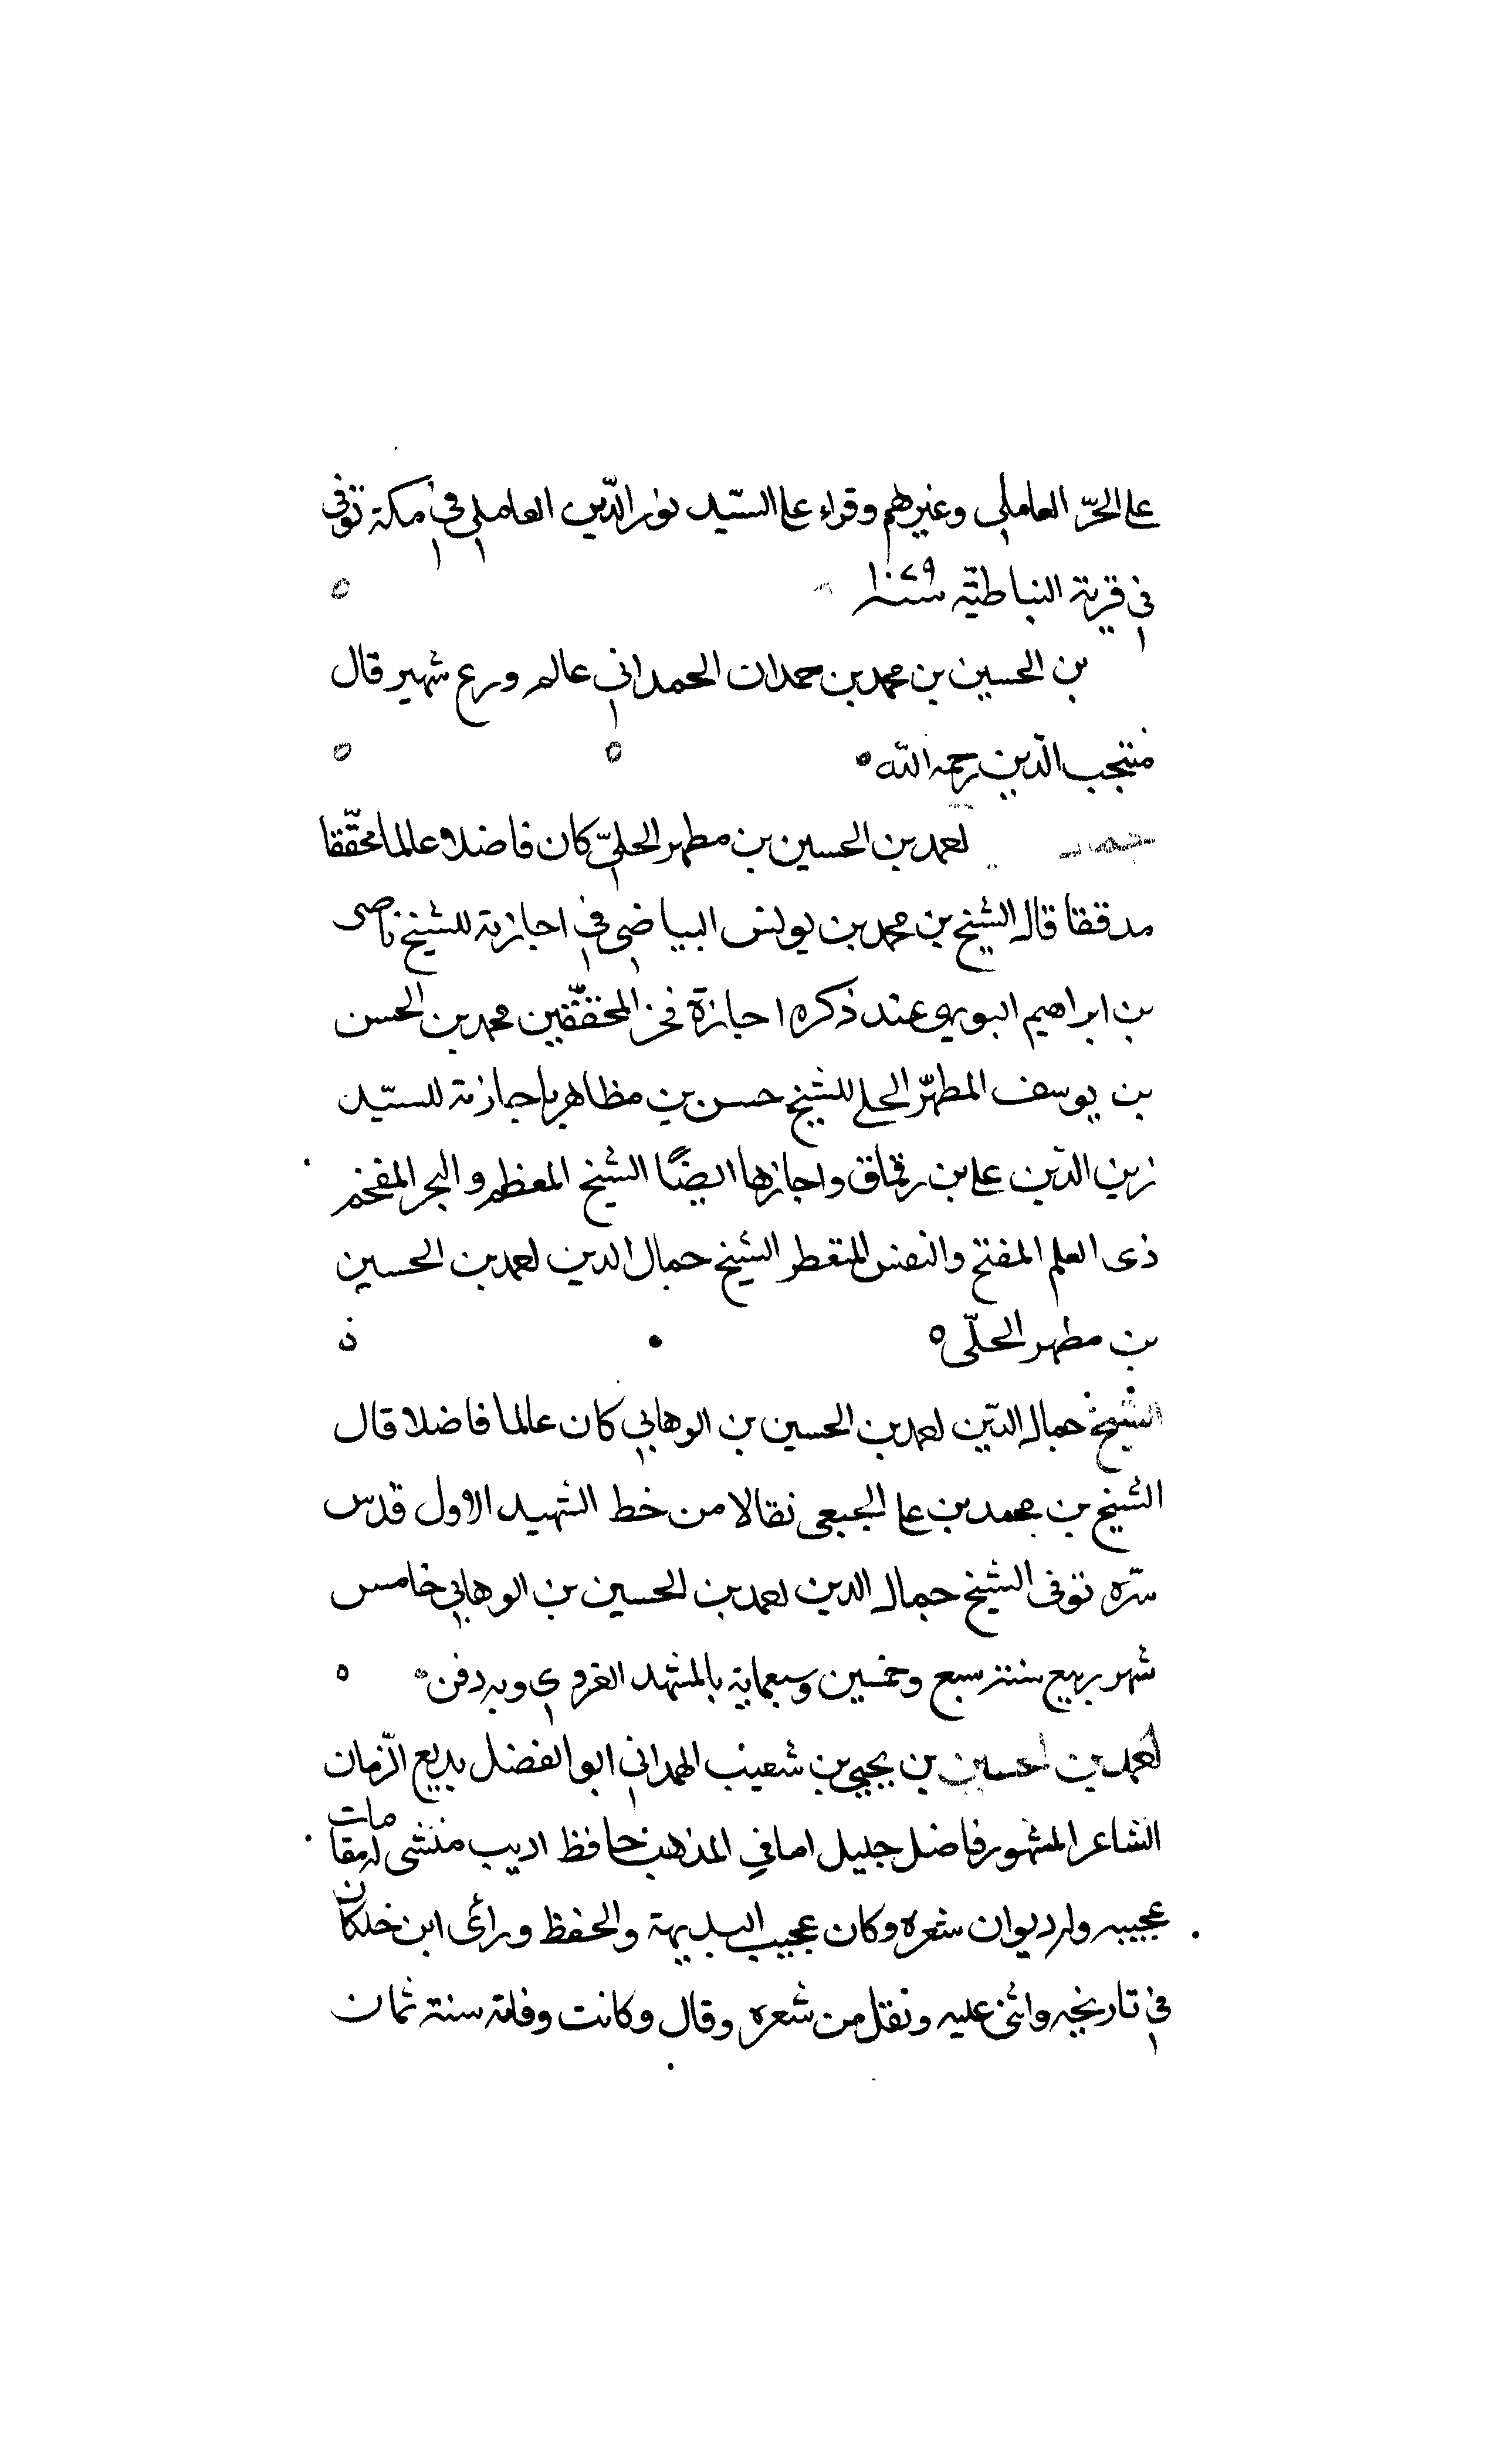 على الحرّ العاملي وغيرهم وقراء على السّيد نور الدّين العاملي في مكة توفى
فى قرية النباطيّه سنة ١٠٧٩
بن الحسين بن محمد بن حمدان الحمداني عالم ورع شهير قال
منتجب الدّين رحمه اللّه
احمد بن الحسين بن مطهر الحلّي كان فاضلا عالما محقّقا
مدققا قاله الشيخ بن محمد بن يونس البياضي في اجازته للشيخ ناصر
بن ابراهيم البويهي عند ذكره اجازة فخر المحققّين محمد بن الحسن
بن يوسف المطهّر الحلي للشيخ حسن بن مظاهر باجازته للسيّد
زين الدّين علي بن دقماق واجازها ايضًا الشيخ المعظم والبحر المفخم
ذى العلم المفتح والنفس المتقطر الشيخ جمال الدين احمد بن الحسين
بن مطهر الحلّي
الشيخ جمال الدّين احمد بن الحسين بن الوهابي كان عالما فاضلا قال
الشيخ بن محمد بن على الجبعى نقالا من خط الشهيد الاول قدس
سرّه توفى الشيخ جمال الدين احمد بن الحسين بن الوهابي خامس
شهر ربيع سنة سبع وخمسين وسبعماية بالمشهد الغروي وبه دفن
احمد بن احسين بن يحيى بن شعيب الهمداني ابو الفضل بديع الزّمان
الشاعر المشهور فاضل جليل امامي المذهب حافظ اديب منشى له مقامات
عجيبه وله ديوان شعره وكان عجيب البديهة والحفظ وراى ابن خلكان
في تاريخه واثنى عليه ونقل من شعره وقال وكانت وفاته سنة ثمان